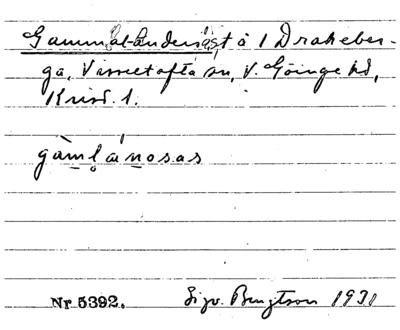 Gammal-Anders, st å 1 Drakeber-
ga, Visseltofta sn, V. Göinge hd,
Krist. l.
gàml ánosas
Nr 5392. Sigv. Bengtson 1931